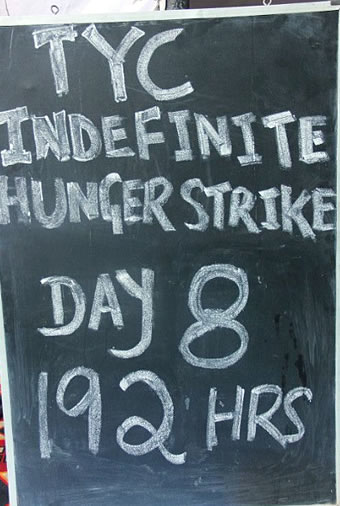 TYC
INDEFINITE
HUNGER STRIKE
DAY 8
192 HRS